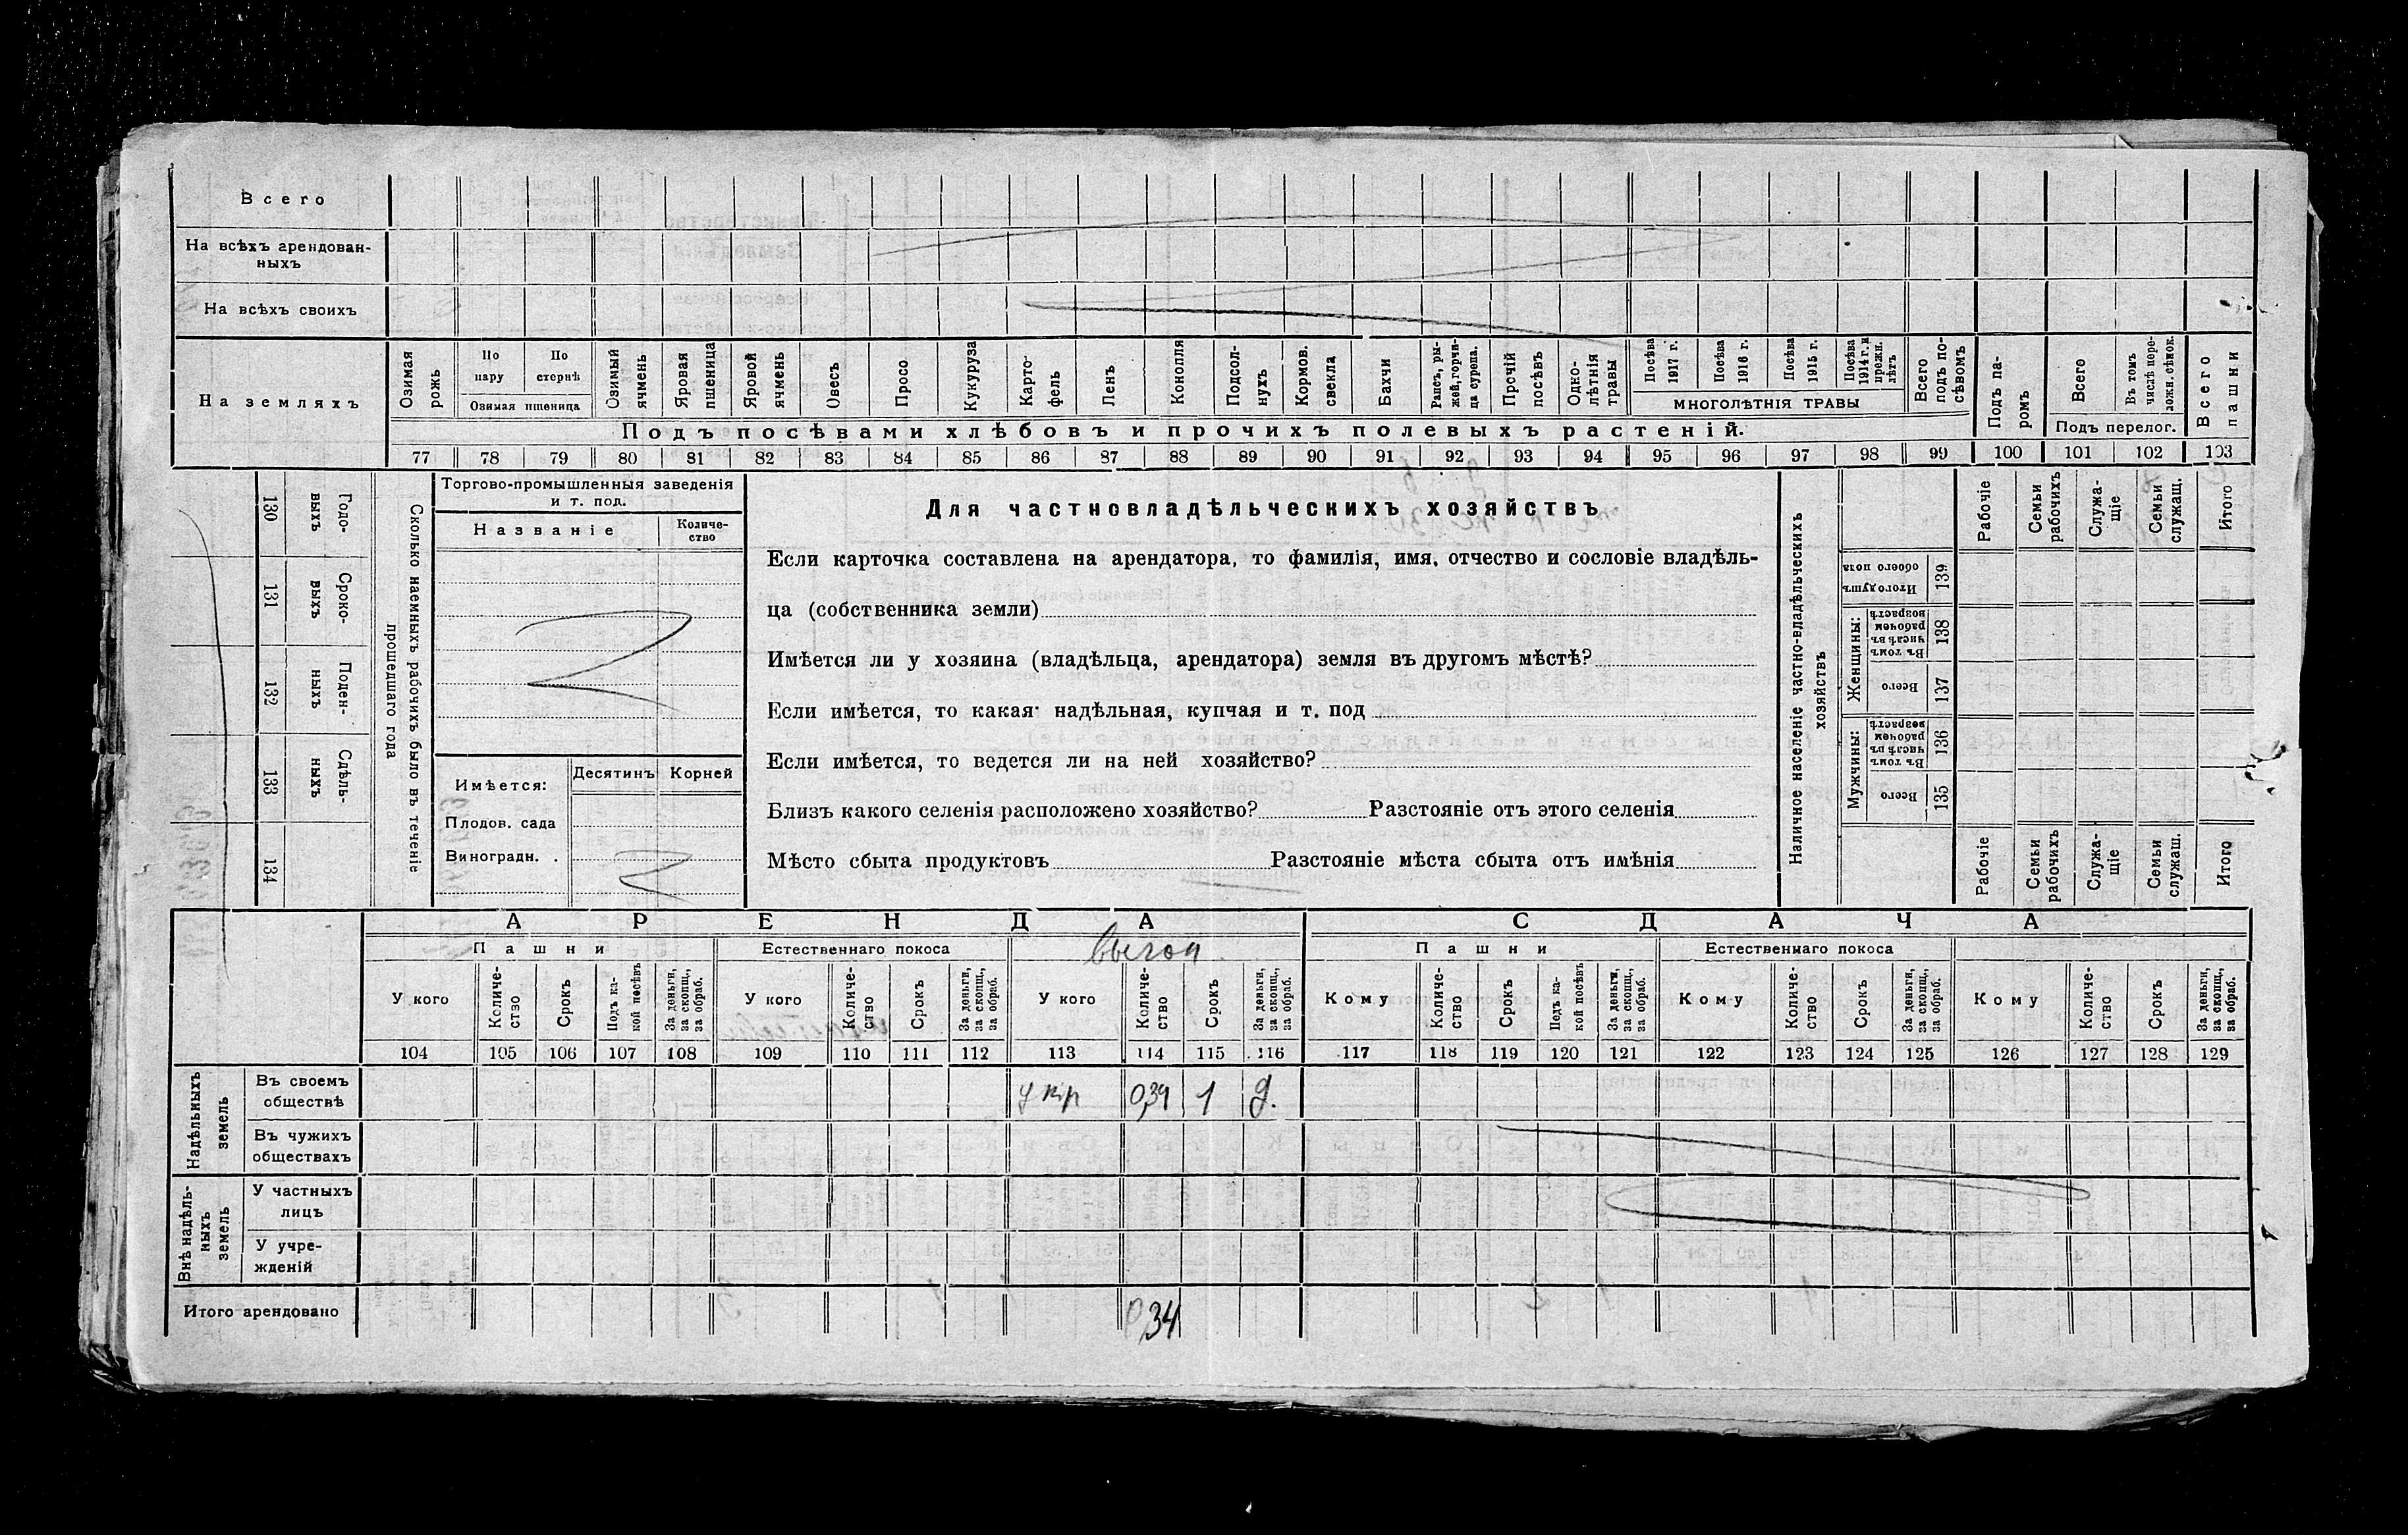 Всего
На всѣхъ арендован-
ныхъ
На всѣхъ своихъ
На земляхъ
Озимая рожь
По пару
По стернѣ
Озимая пшеница
Озимый ячмень
Яровая пшеница
Яровой ячмень
Овесъ
Просо
Кукуруза
Карто-
фель
Ленъ
Конопля
Подсол-
нухъ
Кормов. свекла
Бахчи
Рапсъ, ры-
жей, горчи-
ца сурепа.
Прочій посѣвъ
Одно-
лѣтнія травы
Посѣва 1917 г.
Посѣва 1916 г.
Посѣва 1915 г.
Посѣва 1914 г. и прежн. лѣтъ
МНОГОЛѢТНІЯ ТРАВЫ
Всего подъ по-
сѣвомъ
Подъ па-
ромъ
Всего
Въ томъ числѣ пере-
ложн. сѣнок.
Подъ перелог.
Всего пашни
Подъ посѣвами хлѣбовъ и прочихъ полевыхъ растеній.
77 78 79 80 81 82 83 84 85 86 87 88 89 90 91 92 93 94 95 96 97 98 99 100 101 102 103
130 Годо-
выхъ
131 Сроко-
выхъ
132 Поден-
ныхъ
133 Сдѣль-
ныхъ
134
Сколько наемныхъ рабочихъ было въ теченіе
прошедшаго года
Торгово-промышленныя заведенія
и т. под.
Названіе
Количе-
ство
Имѣется:
Десятинъ Корней
Плодов. сада
Виноградн. .
Для частновладѣльческихъ хозяйствъ
Если карточка составлена на арендатора, то фамилія, имя, отчество и сословіе владѣль-
ца (собственника земли)
Имѣется ли у хозяина (владѣльца, арендатора) земля въ другомъ мѣстѣ?
Если имѣется, то какая: надѣльная, купчая и т. под
Если имѣется, то ведется ли на ней хозяйство?
Близъ какого селенія расположено хозяйство? Разстояніе отъ этого селенія
Мѣсто сбыта продуктовъ Разстояніе мѣста сбыта отъ имѣнія
Наличное населеніе частно-владѣльческихъ
хозяйствъ
Рабочіе
Семьи рабочихъ
Служа-
щіе
Семьи служащ.
Итого
Итого душъ обоего пола
139
Женщины:
Въ томъ числѣ въ рабочемъ возрастѣ
138
Всего
137
Мужчины:
Въ томъ числѣ въ рабочем возрастѣ
136
Всего
135
Рабочіе
Семьи рабочихъ
Служа-
щіе
Семьи служащ.
Итого
АРЕНДА
СДАЧА
Пашни
Естественнаго покоса
выгон
Пашни
Естественнаго покоса
У кого
Количе-
ство
Срокъ
Подъ ка-
кой посѣвъ
За деньги, за скопщ., за обраб.
У кого
Количе-
ство
Срокъ
За деньги, за скопщ., за обраб.
У кого
Количе-
ство
Срокъ
За деньги, за скопщ., за обраб.
Кому
Количе-
ство
Срокъ
Подъ ка-
кой посѣвъ
За деньги, за скопщ., за обраб.
Кому
Количе-
ство
Срокъ
За деньги, за скопщ., за обраб.
Кому
Количе-
ство
Срокъ
За деньги, за скопщ., за обраб.
104 105 106 107 108 109 110 111 112 113 114 115 116 117 118 119 120 121 122 123 124 125 126 127 128 129
Надѣльныхъ
земель
Въ своемъ
обществѣ
1 д.
Въ чужихъ
обществахъ
Внѣ надѣль-
ныхъ
земель
У частныхъ
лицъ
У учре-
жденій
Итого арендовано
0,34